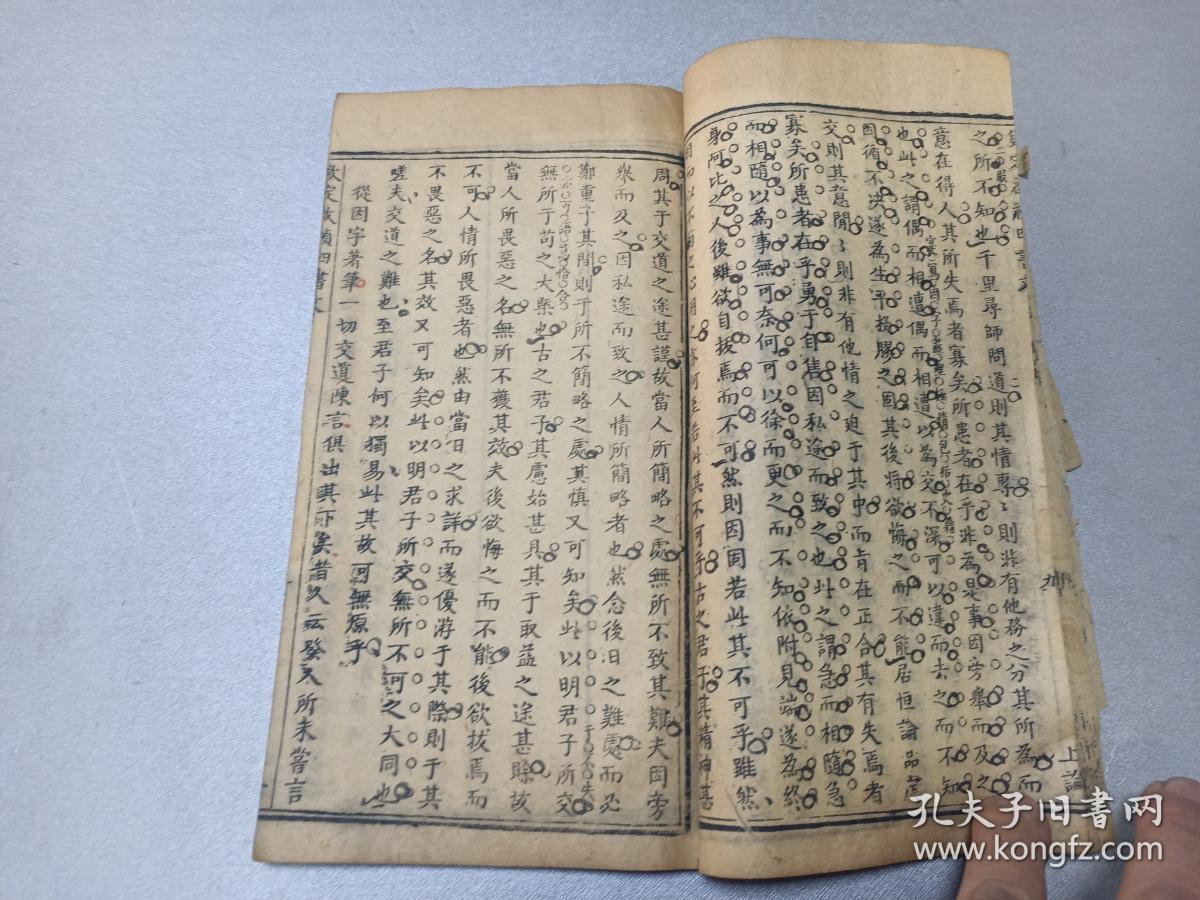 之所不知也千里尋師問道則其情專〻則非有他務之分其所為而
意在得人其所失焉者寡矣所患者在乎非為是事因旁舉而及之
也此之謂偶而相遭偶而相遭以為交不深可以違而去之而不知
因循不決遂為生平投膠之固其後將欲悔之而不能居恒論品
交則其意閒〻則非有他情之迫于其中而肯在正合其有失焉者
寡矣所患者在乎勇于自售因私途而致之也此之謂急而相隨急
而相隨以為事無可奈何可以徐而更之而不知依附見端遂為終
身阿比之人後雖欲自拔焉而不可然則因固若此其不可乎雖然
其不可乎古之君子其精神甚
周其于交道之途甚謹故當人所簡略之處無所不致其難夫因旁
舉而及之因私途而致之人情所簡略者也然念後日之難處而必
鄭重于其間則于所不簡略之處其慎又可知矣此以明君子所交
無所于苟之大槩也古之君子其慮始甚具其于取益之途甚賒故
當人所畏惡之名無所不獲其效夫後欲悔之而不能後欲拔焉而
不可人情所畏惡者也然由當日之求詳而遂優游于其際則于其
不畏惡之名其效又可知矣此以明君子所交無所不可之大同也
嗟夫交道之難也至君子何以獨易此其故可無原乎
從因字著筆一切交道陳言俱出其下矣昔人云發人所未嘗言
欽定啟禎四書文
上論
孔夫子旧书网
www.kongfz.com